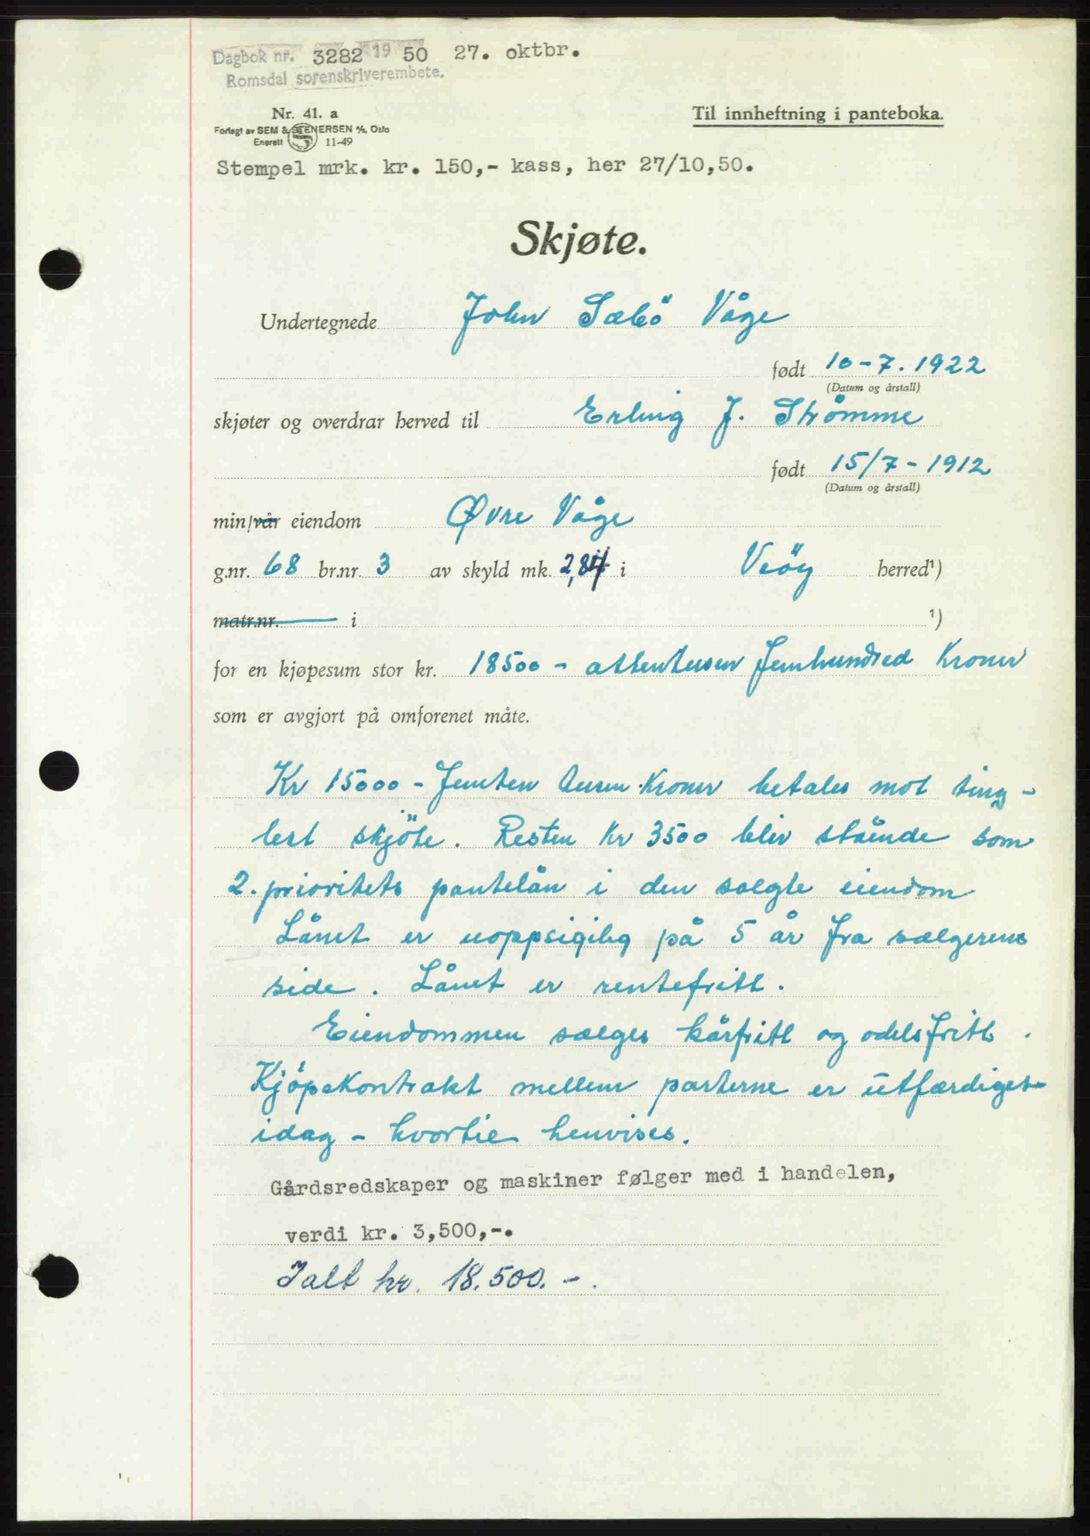 Dagbok nr. 3282 19 50 27. oktbr.
Romsdal sorenskriverembete.
Nr. 41. a
Til innheftning i panteboka.
Forlagt av SEM & STENERSEN A/S, Oslo
Enerett 11-49
Stempel mrk. kr. 150,- kass, her 27/10,50.
Skjøte.
Undertegnede John Sæbö Våge
født 10-7. 1922
(Datum og årstall)
skjøter og overdrar herved til Erling J. Strømme
født 15/7 - 1912
(Datum og årstall)
min/vår eiendom Øvre Våge
g.nr. 68 br.nr. 3 av skyld mk. 2,84 i Veöy herred¹)
matr.nr. i ¹)
for en kjøpesum stor kr. 18500 - attentusen femhundred Kroner
som er avgjort på omforenet måte.
Kr 15000 - femten tusen Kroner betales mot ting-
lest skjöte. Resten Kr 3500 blir stående som
2. prioritets pantelån i den solgte eiendom
Lånet er uoppsigilig på 5 år fra sælgerens
side. Lånet er rentefritt.
Eiendommen sælges kårfritt og odelsfritt.
Kjöpekontrakt mellem parterne er utfærdiget
idag - hvortil henvises.
Gårdsredskaper og maskiner følger med i handelen,
verdi kr. 3,500,-.
Ialt kr. 18.500.-.